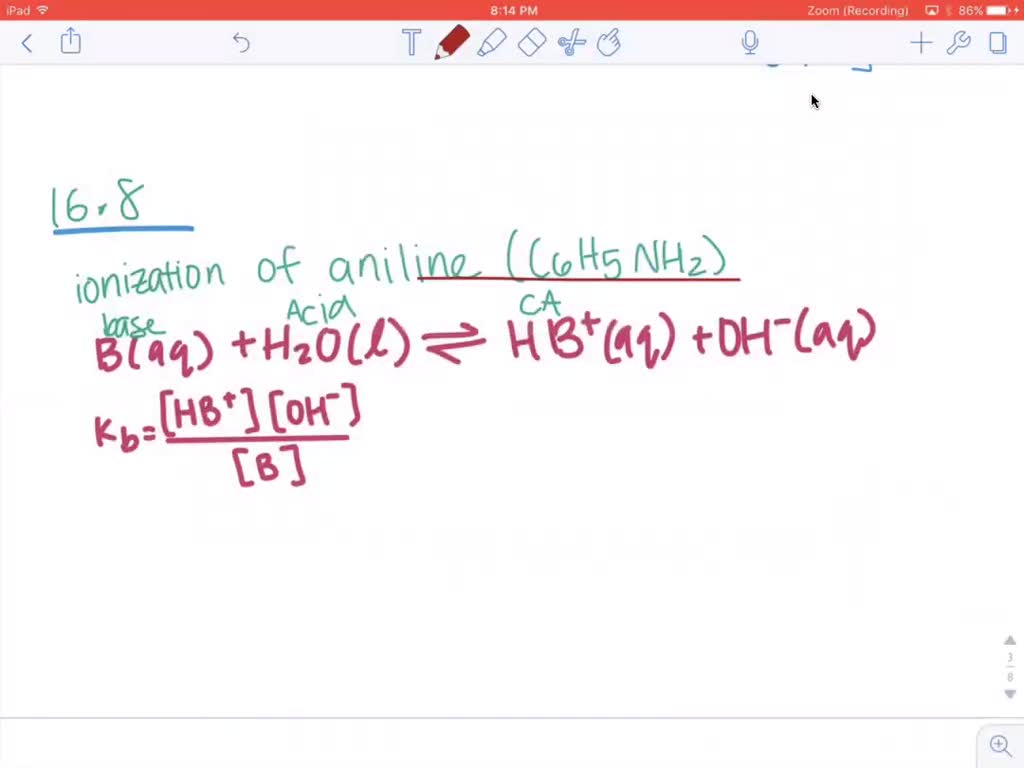 iPad 8:14 PM Zoom (Recording) 86%
T
16.8
ionization of aniline (C6H5NH2)
base Acid CA
B(aq) + H2O(l) ⇌ HB+(aq) + OH-(aq)
Kb = [HB+][OH-]
[B]
3
8